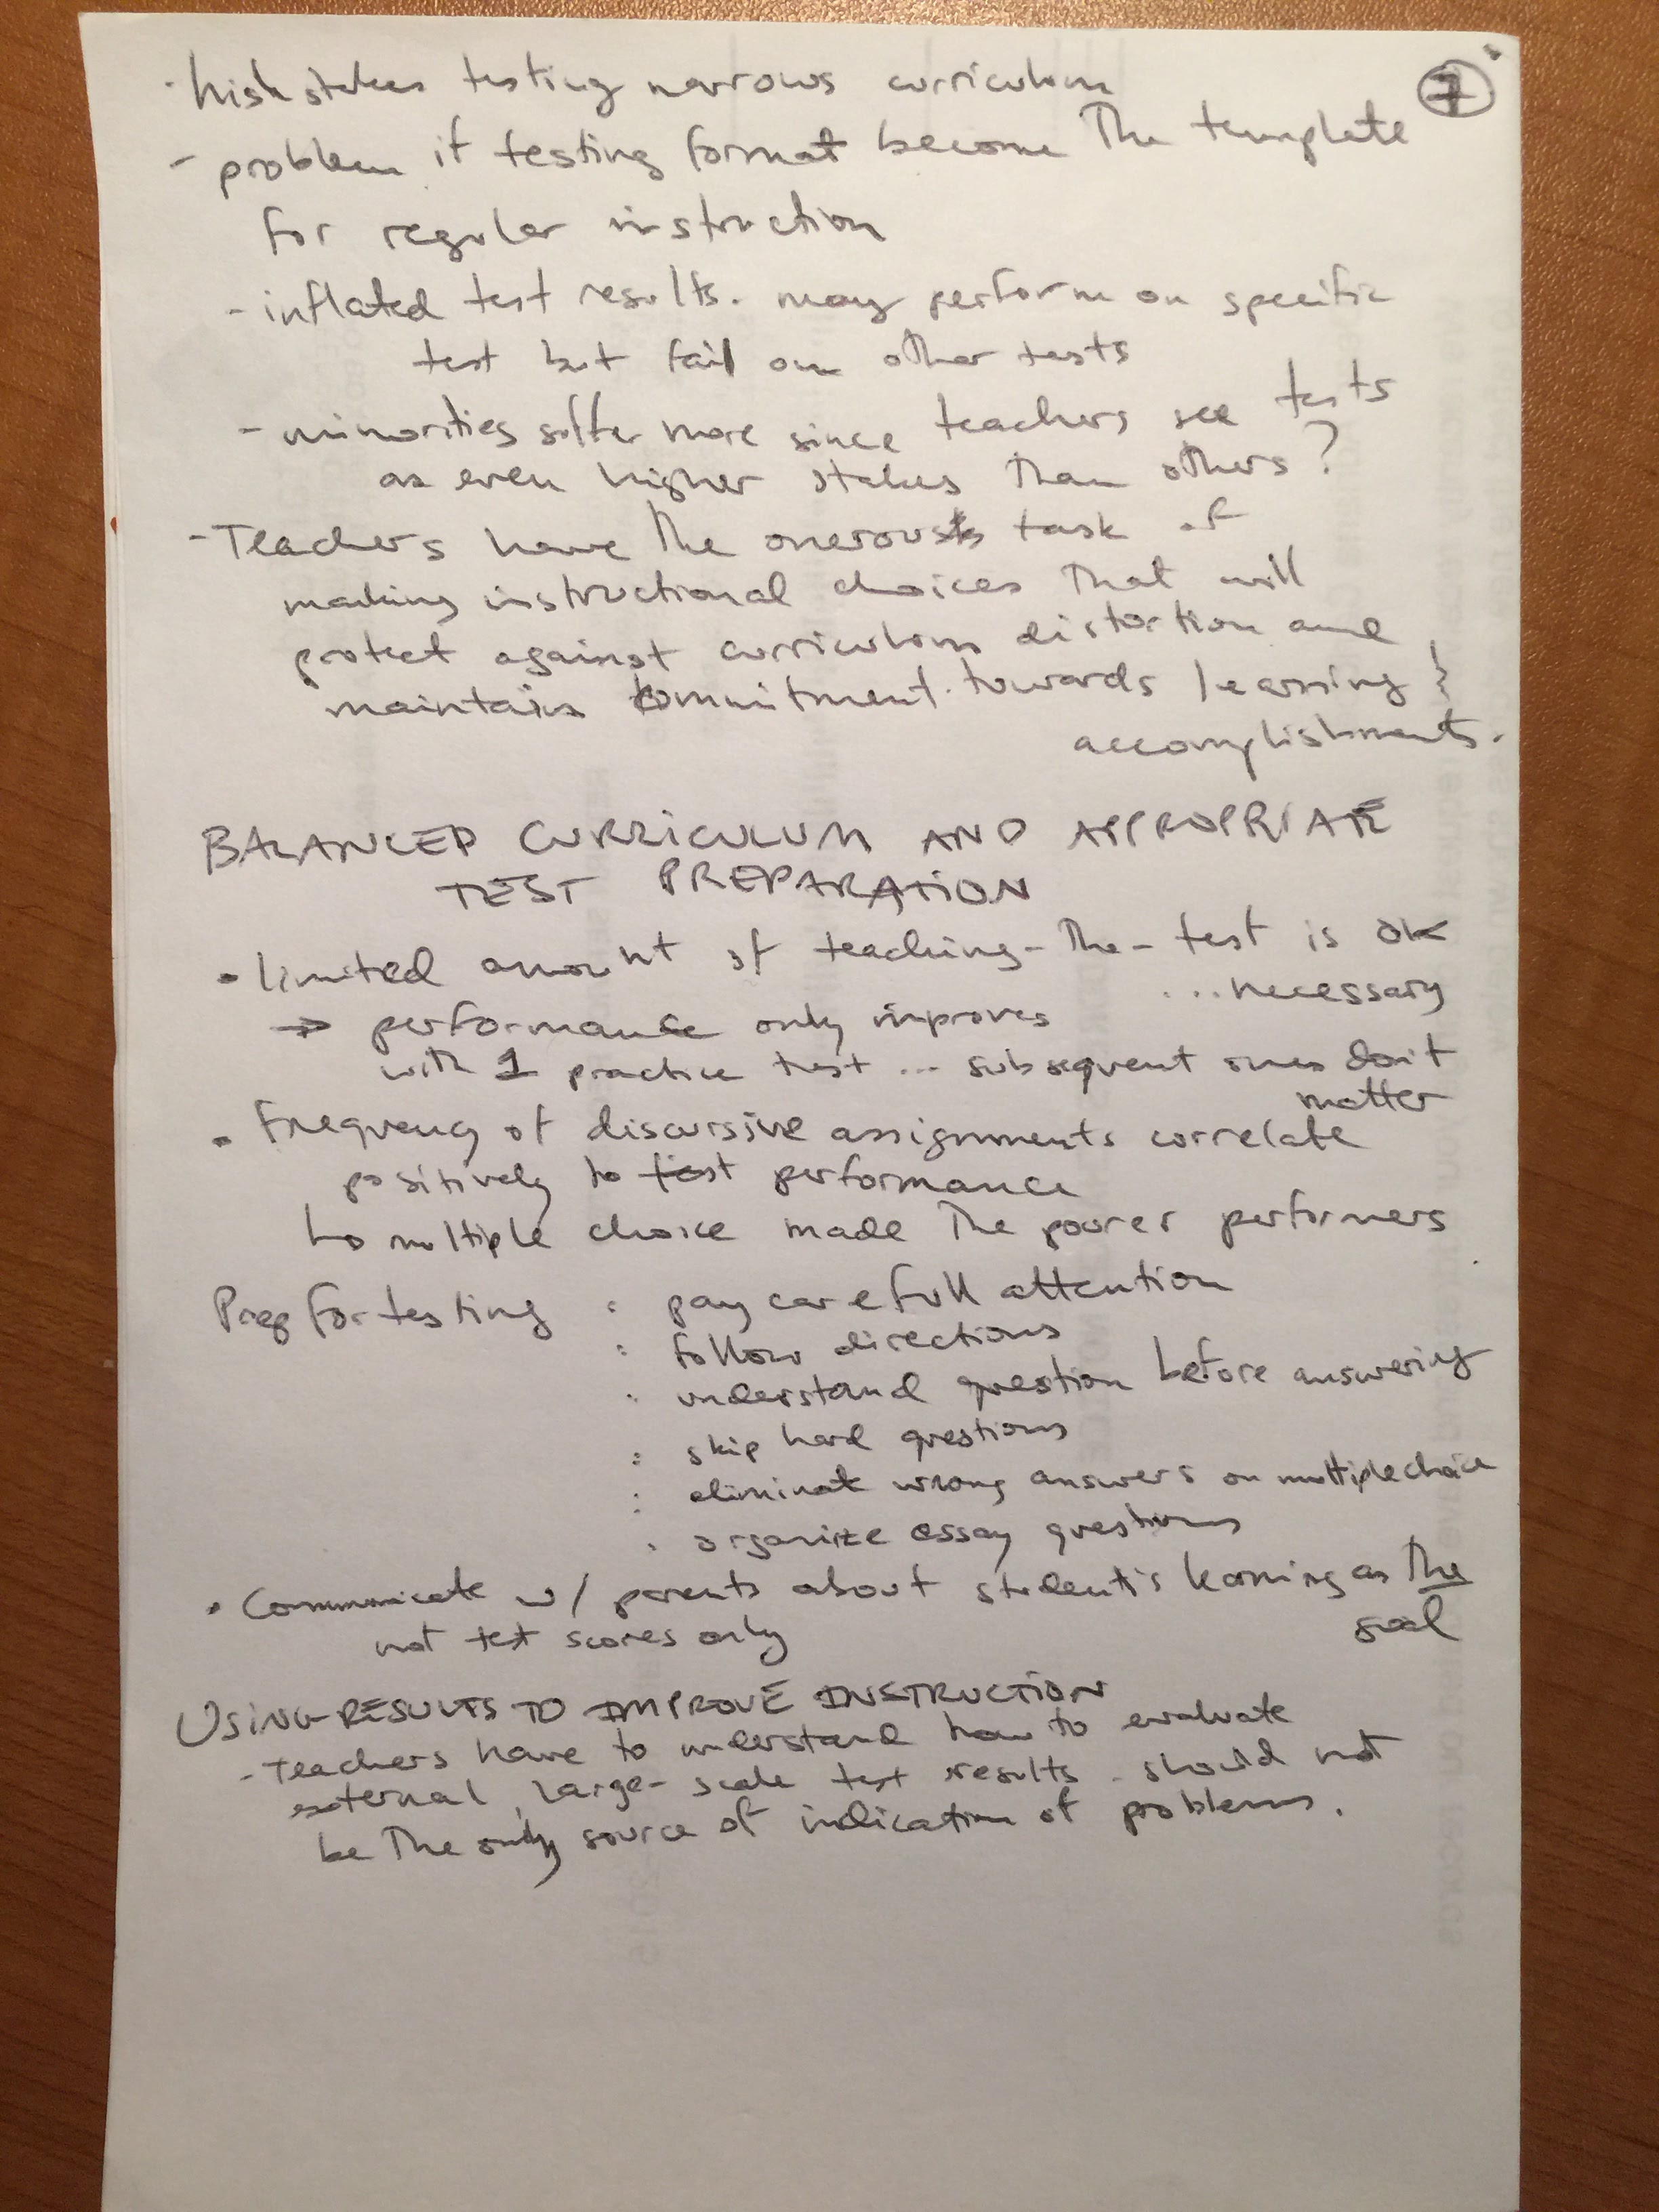 7
· high stakes testing narrows curriculum
- problem if testing format become the template
for regular instruction
- inflated test results. may perform on specific
test but fail on other tests
- minorities suffer more since teachers see tests
as even higher stakes than others?
- Teachers have the onerous task of
making instructional choices that will
protect against curriculum distortion and
maintain commitment towards learning }
accomplishments.
BALANCED CURRICULUM AND APPROPRIATE
TEST PREPARATION
• limited amount of teaching-the-test is OK
...necessary
→ performance only improves
with 1 practice test ... subsequent ones don't
matter
• Frequency of discursive assignments correlate
positively to test performance
↳ multiple choice made the poorer performers
Prep for testing : pay carefull attention
: follow directions
· understand question before answering
: skip hard questions
: eliminate wrong answers on multiple choice
· organize essay questions
• Communicate w/ parents about student's learning as the
goal
not test scores only
USING RESULTS TO IMPROVE INSTRUCTION
- Teachers have to understand how to evaluate
external, large-scale test results. should not
be the only source of indication of problems.